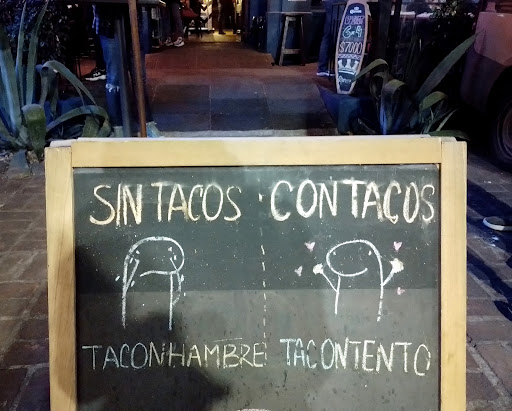 $7000
SIN TACOS
CON TACOS
TACONHAMBRE
TACONTENTO